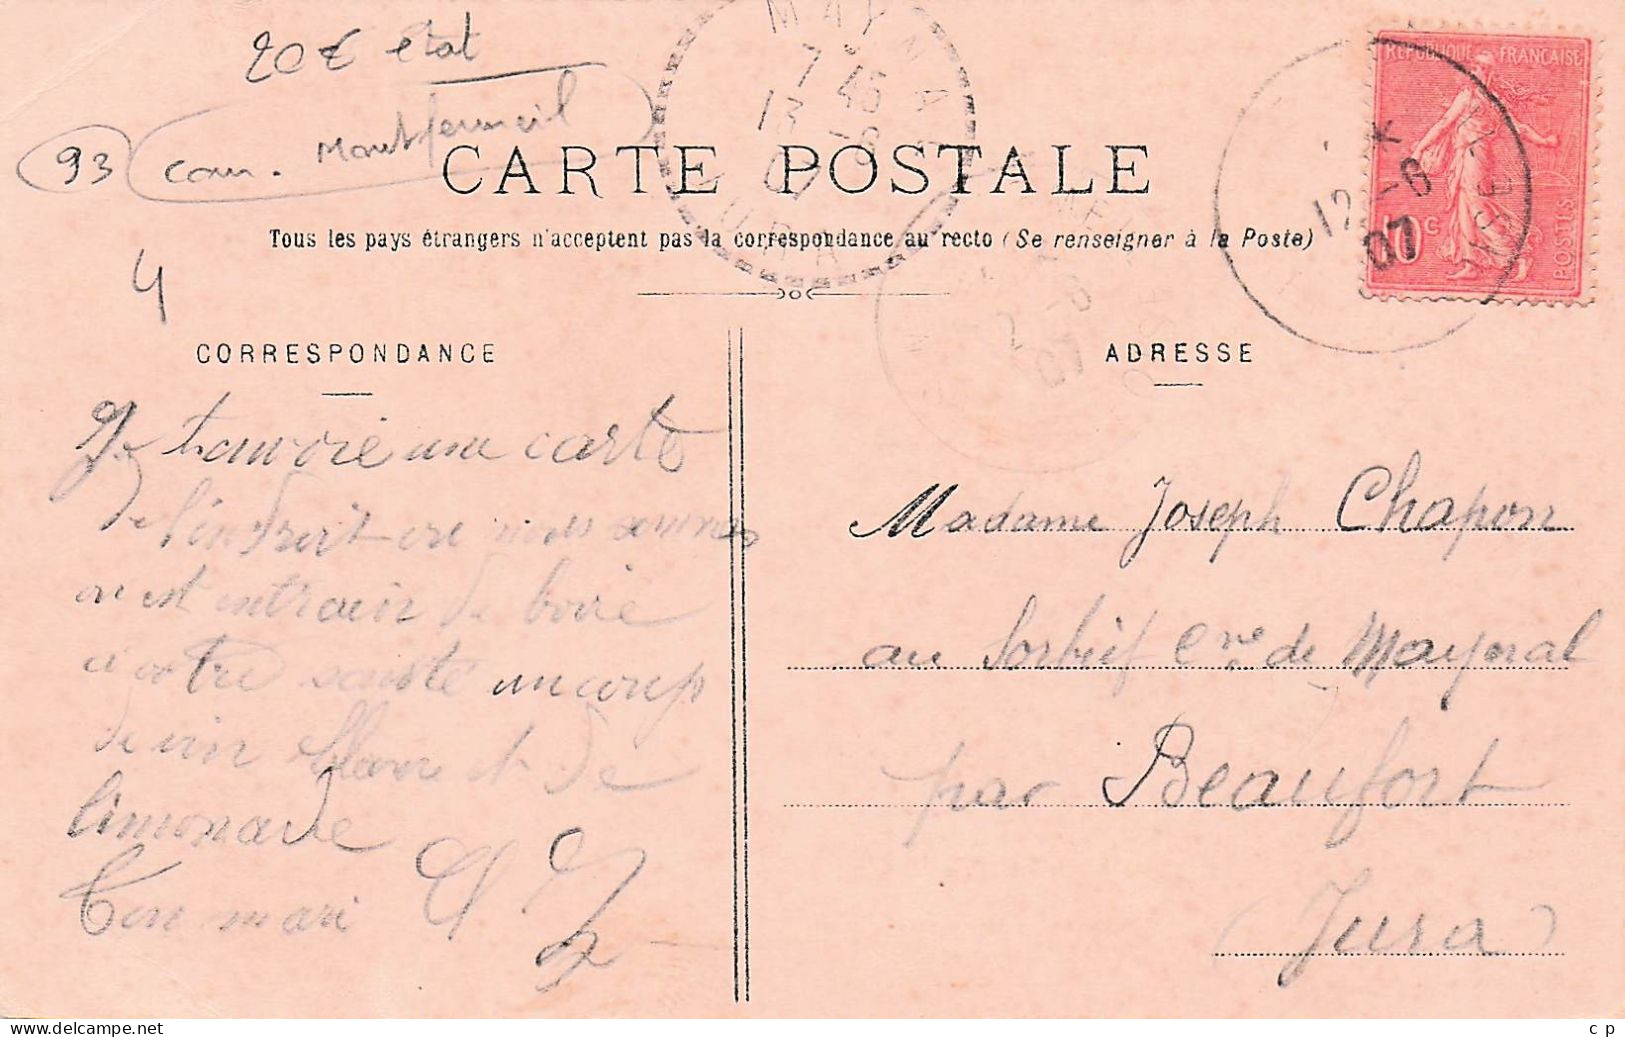 20€ état
93 com. Montfermeil
4
MAYNAL
7 45
13 -6
07
JURA
CARTE POSTALE
Tous les pays étrangers n'acceptent pas la correspondance au recto (Se renseigner à la Poste)
REPUBLIQUE FRANÇAISE
10c
POSTES
12 -6
07
CORRESPONDANCE
ADRESSE
Je t'anvoie une carte
de l'endroit ou nous sommes
on est entrain de boire
a votre santé un coup
de vin blanc et de
limonade
Ton mari
Madame Joseph Chapon
au Sorbief Cne de Maynal
par Beaufort
(Jura)
www.delcampe.net
c p